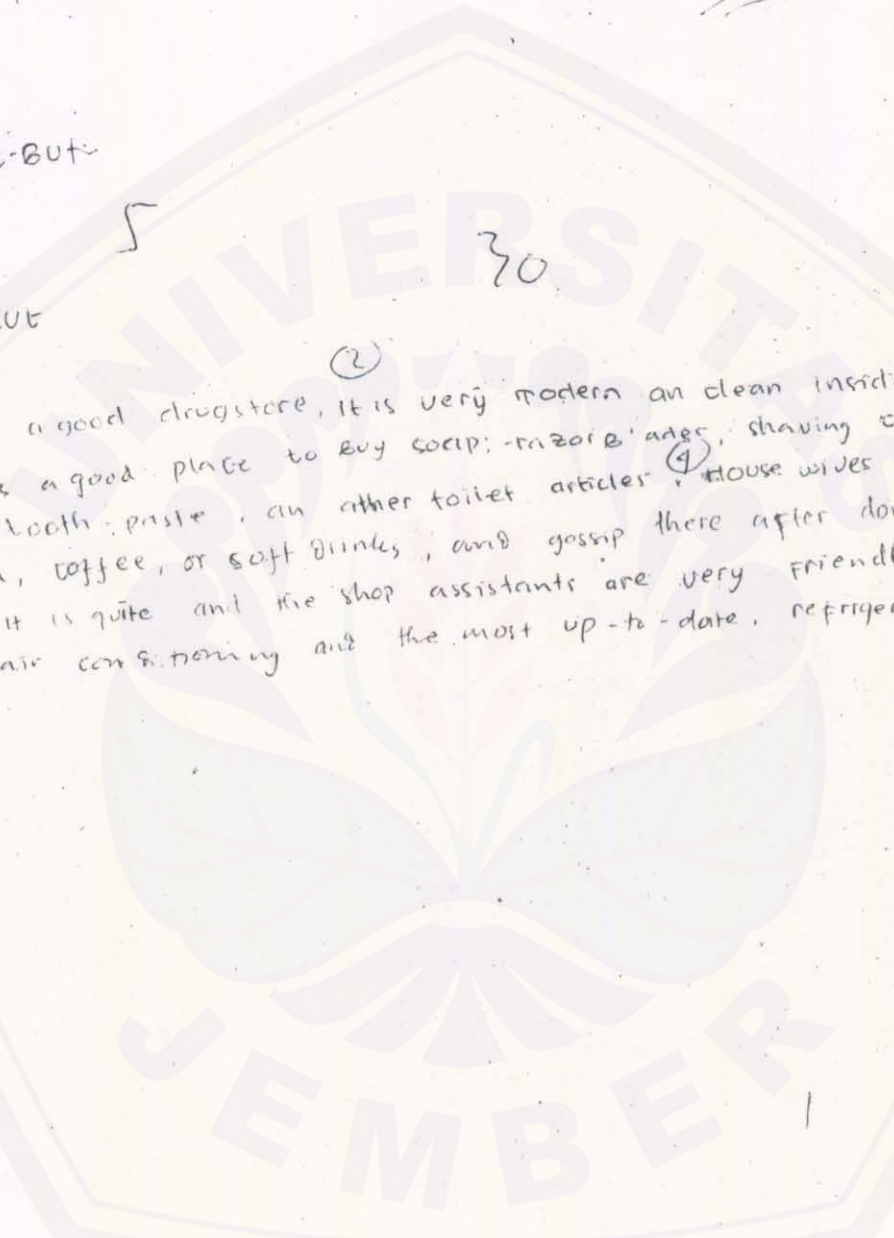 -But
5
30
ut
2
a good drugstore, It is very modern an clean insid
s a good place to Buy soap; -razor B'ades, shaving c
tooth-paste, an other toilet articles 4. House wives
, coffee, or soft Drinks, and gossip there after do
it is quite and the shop assistants are very Friendl
air conditioning and the most up-to-date, refriger
UNIVERSITA
JEMBER